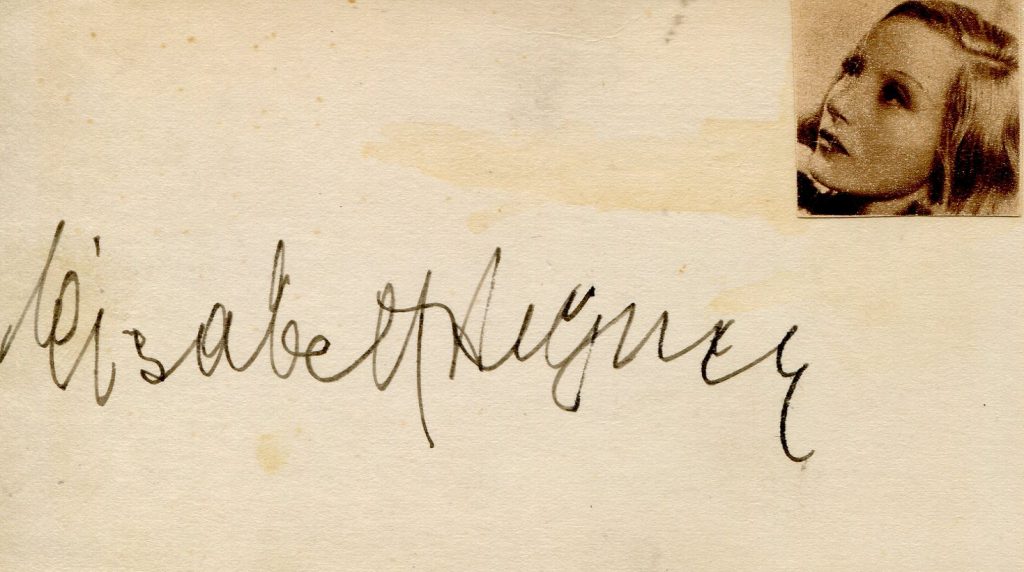 Elisabeth Bergner